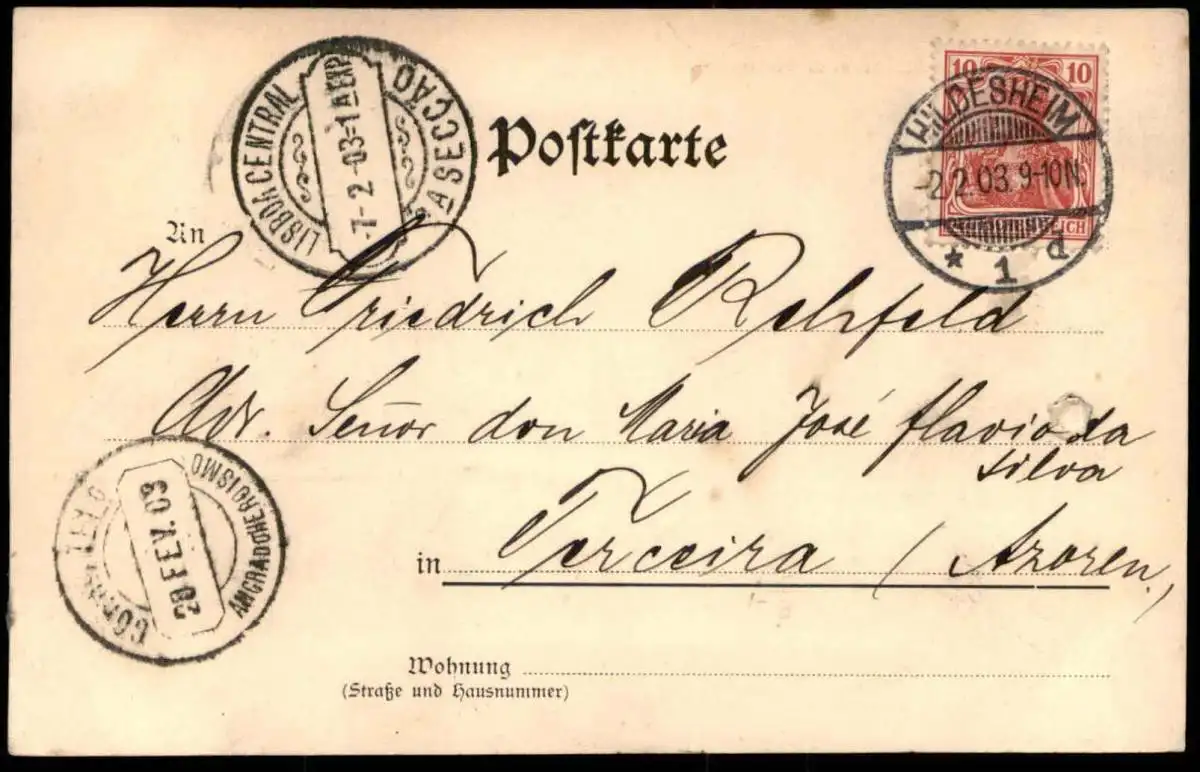 LISBOA CENTRAL
7-2-03=1 A EXP
A SECCÇÃO
Postkarte
10 10
HILDESHEIM
-2.2.03. 9-10N.
* 1 d
REICH
An
Herrn Friedrich Rehfeld
Adr. Señor don Maria José flavio da
silva
in Terceira (Azoren)
CORREIO TELO
20 FEV. 03
ANGRA DO HEROISMO
Wohnung
(Straße und Hausnummer)